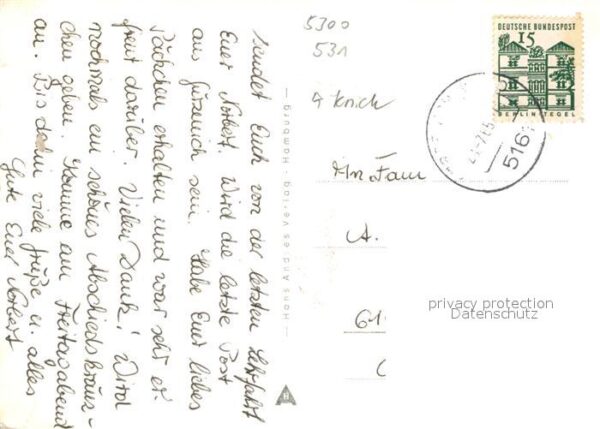 sendet Euch von der letzten Lehrfahrt
Euer Norbert. Wird die letzte Post
aus Gützenich sein. Habe Euer liebes
Päckchen erhalten und war sehr er-
freut darüber. Vielen Dank! Wird
nochmals ein schönes Abschiedskränz-
chen geben. Komme am Freitagabend
an. Bis dahin viele Grüße u. alles
Gute Euer Norbert
Hans Andres Verlag - Hamburg
5300
531
DEUTSCHE BUNDESPOST
15
BERLIN TEGEL
516
An Fam
A.
61
privacy protection
Datenschutz